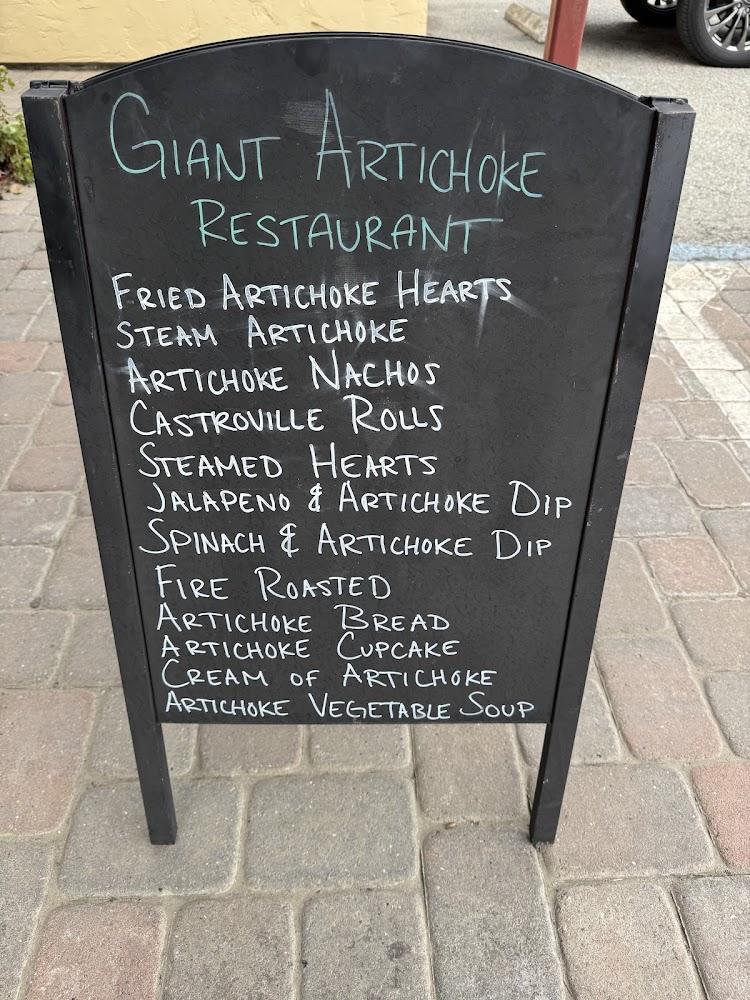 GIANT ARTICHOKE
RESTAURANT
FRIED ARTICHOKE HEARTS
STEAM ARTICHOKE
ARTICHOKE NACHOS
CASTROVILLE ROLLS
STEAMED HEARTS
JALAPENO & ARTICHOKE DIP
SPINACH & ARTICHOKE DIP
FIRE ROASTED
ARTICHOKE BREAD
ARTICHOKE CUPCAKE
CREAM OF ARTICHOKE
ARTICHOKE VEGETABLE SOUP